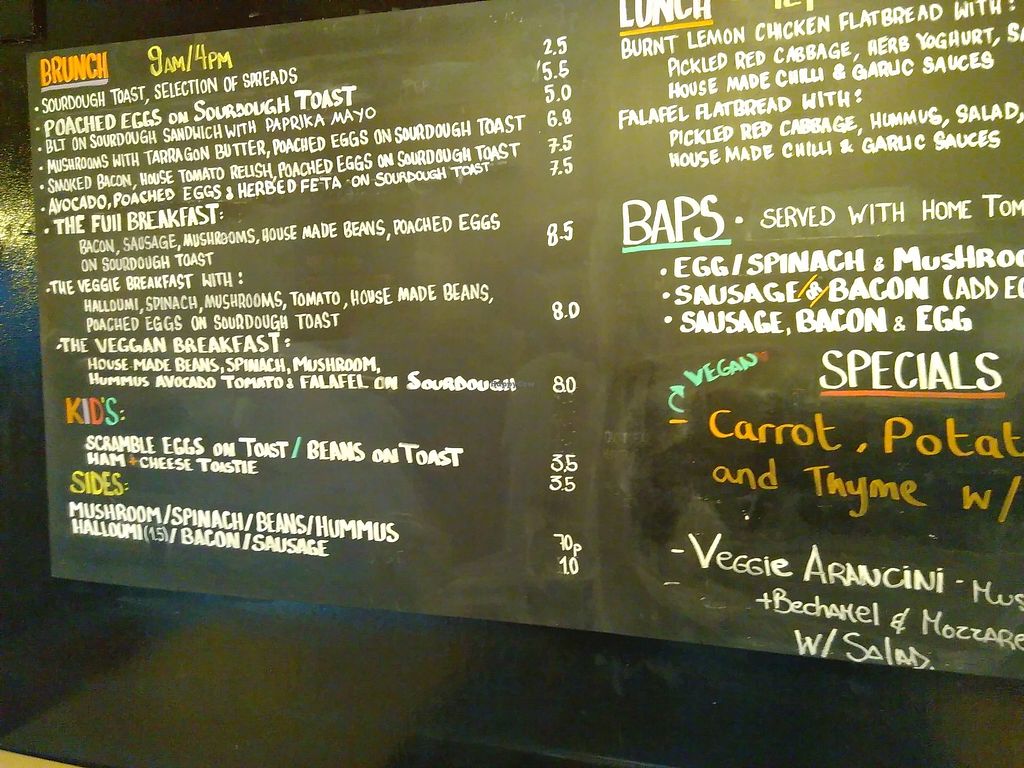 BRUNCH 9AM/4PM
• SOURDOUGH TOAST, SELECTION OF SPREADS 2.5
• POACHED EGGS ON SOURDOUGH TOAST 5.5
• BLT ON SOURDOUGH SANDWICH WITH PAPRIKA MAYO 5.0
• MUSHROOMS WITH TARRAGON BUTTER, POACHED EGGS ON SOURDOUGH TOAST 6.8
• SMOKED BACON, HOUSE TOMATO RELISH, POACHED EGGS ON SOURDOUGH TOAST 7.5
• AVOCADO, POACHED EGGS & HERBED FETA ON SOURDOUGH TOAST 7.5
• THE FUll BREAKFAST:
BACON, SAUSAGE, MUSHROOMS, HOUSE MADE BEANS, POACHED EGGS 8.5
ON SOURDOUGH TOAST
-THE VEGGIE BREAKFAST WITH:
HALLOUMI, SPINACH, MUSHROOMS, TOMATO, HOUSE MADE BEANS,
POACHED EGGS ON SOURDOUGH TOAST 8.0
-THE VEGGAN BREAKFAST:
HOUSE MADE BEANS, SPINACH, MUSHROOM,
HUMMUS AVOCADO TOMATO & FALAFEL ON SOURDOUGH 8.0
KID'S:
SCRAMBLE EGGS ON TOIST / BEANS ON TOAST 3.5
HAM + CHEESE TOISTIE 3.5
SIDES:
MUSHROOM/SPINACH/BEANS/HUMMUS 70p
HALLOUMI (1.5)/BACON/SAUSAGE 1.0
LUNCH
BURNT LEMON CHICKEN FLATBREAD WITH:
PICKLED RED CABBAGE, HERB YOGHURT,
HOUSE MADE CHILLI & GARLIC SAUCES
FALAFEL FLATBREAD WITH:
PICKLED RED CABBAGE, HUMMUS, SALAD,
HOUSE MADE CHILLI & GARLIC SAUCES
BAPS • SERVED WITH HOME
• EGG/SPINACH &
• SAUSAGE & BACON (ADD
• SAUSAGE, BACON & EGG
SPECIALS
VEGAN
- Carrot,
and Thyme W/
- VEGGIE ARANCINI -
+BECHAMEL &
W/ SALAD.